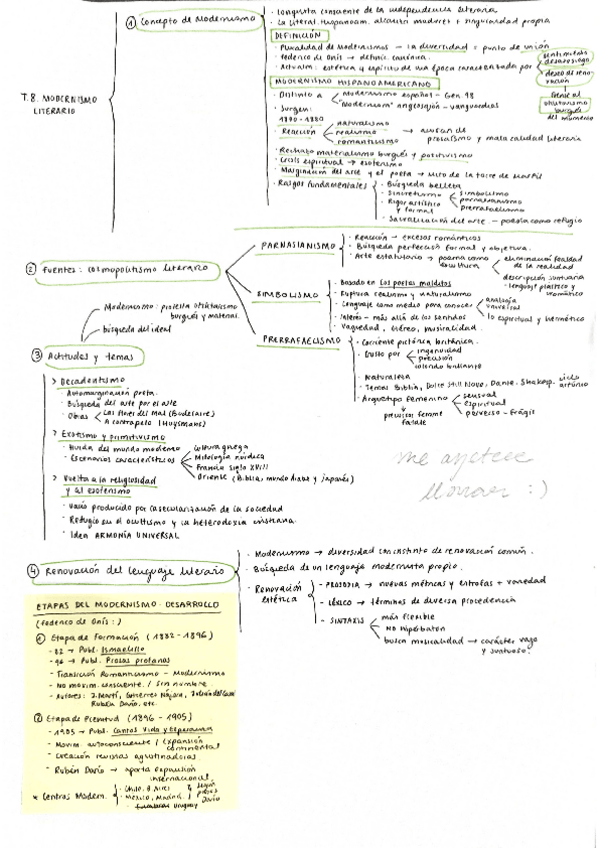 T.8. MODERNISMO
LITERARIO
① Concepto de Modernismo
· Conquista consciente de la independencia literaria
· La literat. Hispanoam. alcanza madurez + singularidad propia
DEFINICIÓN
· Pluralidad de Modernismos → la diversidad = punto de unión
· Federico de Onís → definic. canónica.
· Actualm: estética y espíritu de una época caracterizada por
sentimiento
desasosiego
deseo de reno-
vación
frente al
utilitarismo
burgués
del momento
MODERNISMO HISPANOAMERICANO
· Distinto a
Modernismo español - Gen. 98
"Modernism" anglosajón - vanguardias
· Surgen:
1870 - 1880
· Reacción
naturalismo
realismo
romanticismo
→ acusan de
prosaísmo y mala calidad literaria
· Rechazo materialismo burgués y positivismo
· Crisis espiritual → esoterismo
· Marginación del arte y el poeta → mito de la torre de marfil
· Rasgos fundamentales
· Búsqueda belleza
· Sincretismo
simbolismo
parnasianismo
prerrafaelismo
· Rigor artístico
y formal
· Sacralización del arte - poesía como refugio
② Fuentes: cosmopolitismo literario
PARNASIANISMO
· Reacción → excesos románticos
· Búsqueda perfección formal y objetiva.
· Arte estatuario → poema como
escultura
eliminación fealdad
de la realidad
descripción suntuaria
· lenguaje plástico y
cromático
SIMBOLISMO
· Basado en los poetas malditos
· Ruptura realismo y naturalismo
· Lenguaje como medio para conocer
analogía
universal
lo espiritual y hermético
· Interés - más allá de los sentidos
· Vaguedad, etéreo, musicalidad.
PRERRAFAELISMO
· Corriente pictórica británica.
· Gusto por
ingenuidad
precisión
colorido brillante
· Naturaleza
· Temas: Biblia, Dolce Stil Novo, Dante, Shakesp. ciclo
artúrico
· Arquetipo femenino
sensual
espiritual
perverso - frágil
precursor femme
fatale
Modernismo: protesta utilitarismo
burgués y material.
búsqueda del ideal
③ Actitudes y temas
> Decadentismo
· Automarginación poeta.
· Búsqueda del arte por el arte
· Obras
Las flores del mal (Baudelaire)
A contrapelo (Huysmans)
> Exotismo y primitivismo
· Huida del mundo moderno
· Escenarios característicos
Cultura griega
Mitología nórdica
Francia siglo XVIII
Oriente (Biblia, mundo árabe y japonés)
> Vuelta a la religiosidad
y al esoterismo
· Vacío producido por la secularización de la sociedad
· Refugio en el ocultismo y la heterodoxia cristiana.
· Idea ARMONÍA UNIVERSAL
me apetece
llorar :)
④ Renovación del lenguaje literario
· Modernismo → diversidad con instinto de renovación común.
· Búsqueda de un lenguaje modernista propio.
· Renovación
estética
· PROSODIA → nuevas métricas y estrofas + variedad
· LÉXICO → términos de diversa procedencia
· SINTAXIS
más flexible
NO hipérbaton
busca musicalidad → carácter vago
y suntuoso.
ETAPAS DEL MODERNISMO: DESARROLLO
(Federico de Onís:)
① Etapa de Formación (1882 - 1896)
- 82 → Publ. Ismaelillo
- 96 → Publ. Prosas profanas
- Transición Romanticismo - Modernismo
- No movim. consciente. / Sin nombre
- Autores: J. Martí, Gutiérrez Nájera, Julián del Casal
Rubén Darío. etc.
② Etapa de Plenitud (1896 - 1905)
- 1905 → Publ. Cantos Vida y Esperanza
- Movim. autoconsciente / Expansión
continental
- Creación revistas aglutinadoras
- Rubén Darío → aporta expansión
internacional
* Centros Modern.
· Chile, B. Aires
· México, Madrid